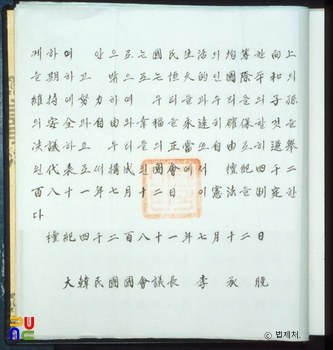 게하여 안으로는國民生活의均等한向上
을期하고 밖으로는恒久的인國際平和의
維持에努力하여 우리들과우리들의子孫
의安全과自由와幸福을永遠히確保할것을
決議하고 우리들의正當또自由로히選擧
된代表로써構成된國會에서 檀紀四千二
百八十一年七月十二日 이憲法을制定한
다
檀紀四千二百八十一年七月十二日
大韓民國國會議長 李承晩
© 법제처.